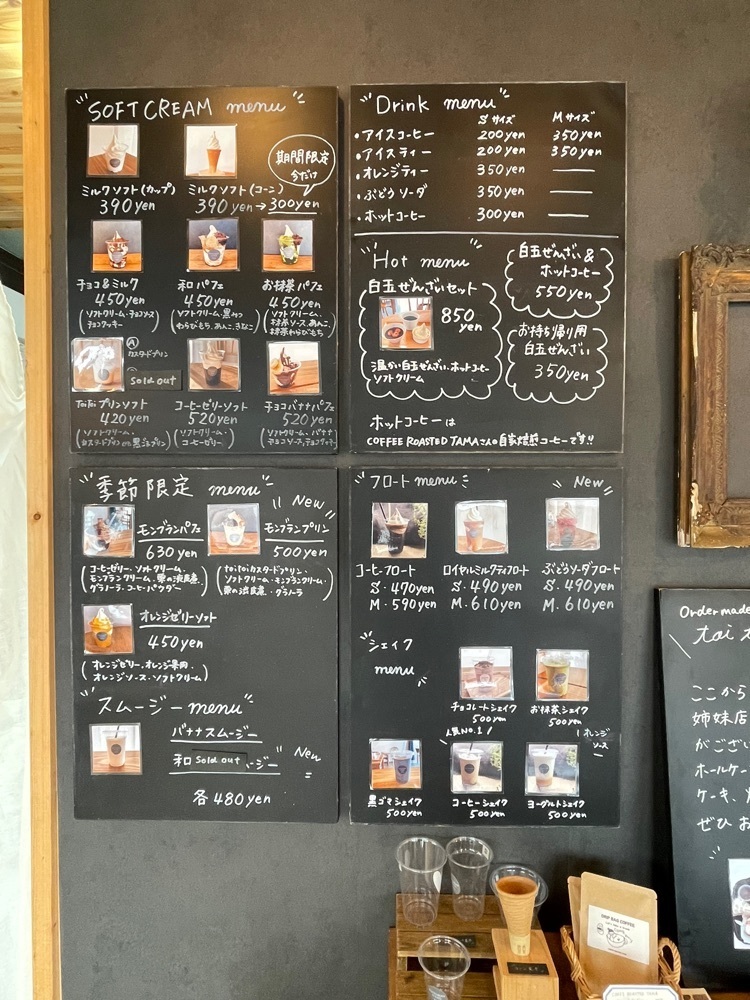 SOFT CREAM menu
期間限定
今だけ
ミルクソフト(カップ)
390yen
ミルクソフト(コーン)
390yen→300yen
チョコ&ミルク
450yen
(ソフトクリーム・チョコソース
チョコクッキー)
和パフェ
450yen
(ソフトクリーム・黒みつ
わらびもち、あんこ、きなこ)
お抹茶パフェ
450yen
(ソフトクリーム・
抹茶ソース、あんこ、
抹茶わらびもち)
Ⓐ
カスタードプリン
sold out
toitoiプリンソフト
420yen
(ソフトクリーム・
コーヒーゼリーソフト
520yen
(ソフトクリーム・
コーヒーゼリー)
チョコバナナパフェ
520yen
(ソフトクリーム・バナナ
チョコソース、チョコクッキー)
Drink menu
Sサイズ Mサイズ
・アイスコーヒー 200yen 350yen
・アイスティー 200yen 350yen
・オレンジティー 350yen ―
・ぶどうソーダ 350yen ―
・ホットコーヒー 300yen ―
Hot menu
白玉ぜんざいセット
850
yen
温かい白玉ぜんざい・ホットコーヒー
ソフトクリーム
白玉ぜんざい&
ホットコーヒー
550yen
お持ち帰り用
白玉ぜんざい
350yen
ホットコーヒーは
COFFEE ROASTED TAMAさんの自家焙煎コーヒーです!!
季節限定 menu
New
モンブランパフェ
630yen
(コーヒーゼリー、ソフトクリーム、
モンブランクリーム、栗の渋皮煮、
グラノーラ・コーヒーパウダー)
モンブランプリン
500yen
(toitoiカスタードプリン・
ソフトクリーム・モンブランクリーム・
栗の渋皮煮・グラノーラ)
オレンジゼリーソフト
450yen
(オレンジゼリー、オレンジ果肉、
オレンジソース・ソフトクリーム)
スムージーmenu
バナナスムージー
和 sold out ージー
New
各480yen
フロートmenu
New
コーヒーフロート
S・470yen
M・590yen
ロイヤルミルクティフロート
S・490yen
M・610yen
ぶどうソーダフロート
S・490yen
M・610yen
シェイク
menu
チョコレートシェイク
500yen
お抹茶シェイク
500yen
人気NO.1
オレンジ
ソース
黒ゴマシェイク
500yen
コーヒーシェイク
500yen
ヨーグルトシェイク
500yen
Order made
ここから
姉妹店
がござい
ホールケー
ケーキ、
ぜひ お
DRIP BAG COFFEE